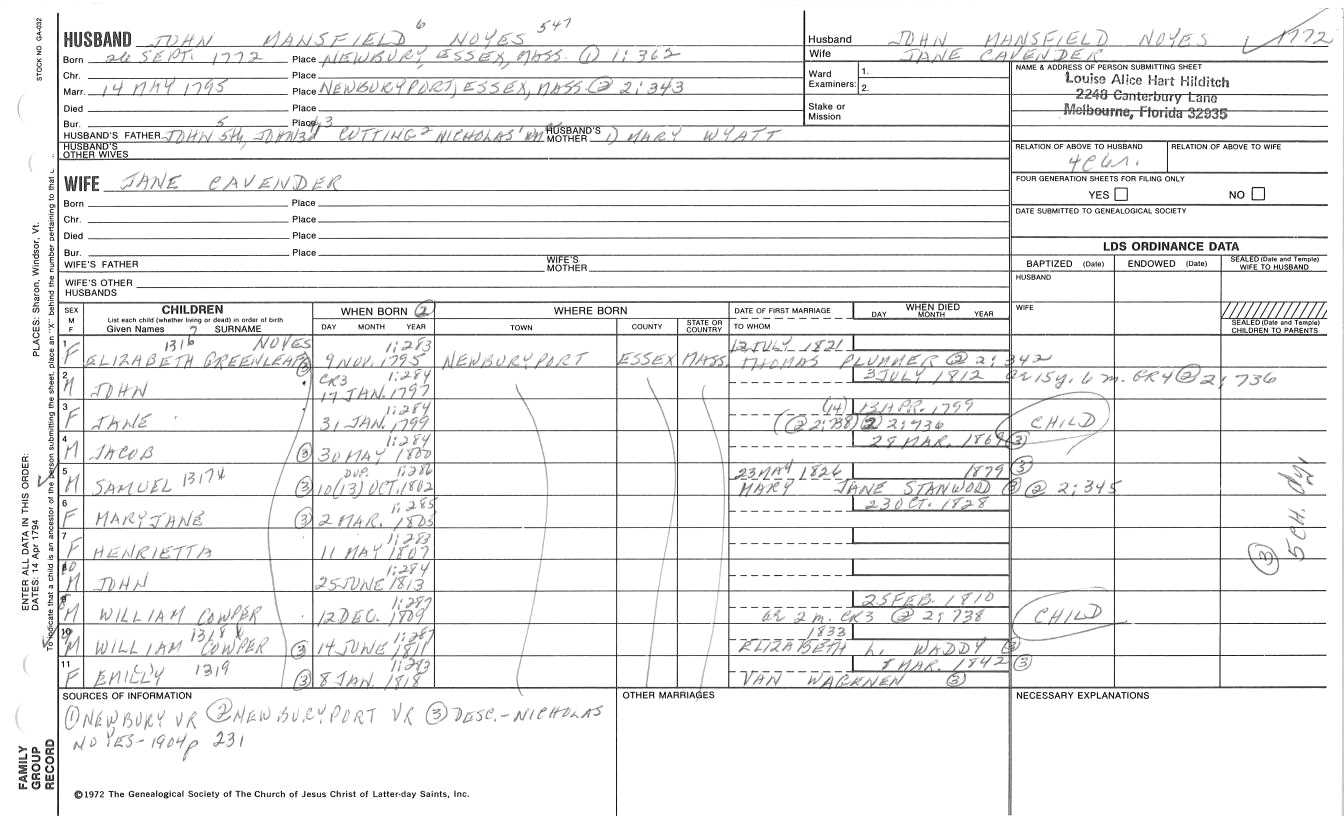 STOCK NO. GA-032
HUSBAND JOHN MANSFIELD 6 NOYES 547
Born 26 SEPT. 1772 Place NEWBURY, ESSEX, MASS. ① 1:362
Chr. Place
Marr. 14 MAY 1795 Place NEWBURYPORT, ESSEX, MASS. ② 2:343
Died Place
Bur. Place
HUSBAND'S FATHER JOHN 5th, JOHN 3d CUTTING 2 NICHOLAS HUSBAND'S MOTHER 1) MARY WYATT
HUSBAND'S OTHER WIVES
WIFE JANE CAVENDER
Born Place
Chr. Place
Died Place
Bur. Place
WIFE'S FATHER WIFE'S MOTHER
WIFE'S OTHER HUSBANDS
Husband JOHN MANSFIELD NOYES 1772
Wife JANE CAVENDER
Ward Examiners: 1. 2.
Stake or Mission
NAME & ADDRESS OF PERSON SUBMITTING SHEET
Louise Alice Hart Hilditch
2248 Canterbury Lane
Melbourne, Florida 32935
RELATION OF ABOVE TO HUSBAND RELATION OF ABOVE TO WIFE
FOUR GENERATION SHEETS FOR FILING ONLY
YES NO
DATE SUBMITTED TO GENEALOGICAL SOCIETY
LDS ORDINANCE DATA
BAPTIZED (Date) ENDOWED (Date) SEALED (Date and Temple) WIFE TO HUSBAND
HUSBAND
WIFE
SEALED (Date and Temple) CHILDREN TO PARENTS
SEX M F CHILDREN List each child (whether living or dead) in order of birth Given Names 7 SURNAME WHEN BORN ② DAY MONTH YEAR WHERE BORN TOWN COUNTY STATE OR COUNTRY DATE OF FIRST MARRIAGE TO WHOM WHEN DIED DAY MONTH YEAR
1 1316 NOYES 1:283 12 JULY 1821
F ELIZABETH GREENLEAF ③ 9 NOV. 1795 NEWBURYPORT ESSEX MASS. THOMAS PLUMMER ② 2:342
2 CR3 1:284 3 JULY 1812 ae 15y. 6 m. GR4 ② 2:736
M JOHN 17 JAN. 1797
3 1:284 (14) 13 APR. 1799
F JANE 31 JAN. 1799 (② 2:738) ② 2:736 CHILD
4 1:284 28 MAR. 1869 ③
M JACOB ③ 30 MAY 1800
5 DUP. 1:286 23 MAY 1826 1879 ③
M SAMUEL 1317 ③ 10(13) OCT. 1802 MARY JANE STANWOOD ③ ② 2:345
6 1:285 23 OCT. 1828
F MARY JANE ③ 2 MAR. 1805
7 1:283
F HENRIETTA 11 MAY 1807
10 1:284
M JOHN 25 JUNE 1813
1:287 25 FEB. 1810
M WILLIAM COWPER 12 DEC. 1809 ae 2 m. CR3 ② 2:738 CHILD
1318 X 1:287 1833
M WILLIAM COWPER ③ 14 JUNE 1811 ELIZABETH L. WADDY ③
11 1319 1:283 8 MAR. 1842 ③
F EMILLY ③ 8 JAN. 1818 VAN WAGENEN ③
③ 5 CH. dy.
SOURCES OF INFORMATION OTHER MARRIAGES NECESSARY EXPLANATIONS
① NEWBURY VR ② NEWBURYPORT VR ③ DESC.-NICHOLAS
NOYES-1904 p 231
©1972 The Genealogical Society of The Church of Jesus Christ of Latter-day Saints, Inc.
FAMILY GROUP RECORD
ENTER ALL DATA IN THIS ORDER:
DATES: 14 Apr 1794
PLACES: Sharon, Windsor, Vt.
To indicate that a child is an ancestor of the person submitting the sheet, place an "X" behind the number pertaining to that